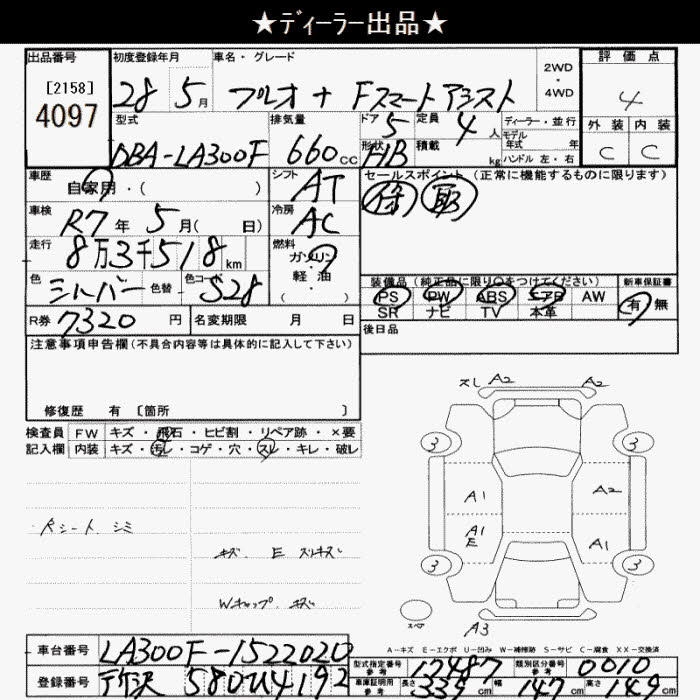 ★ディーラー出品★
出品番号 初度登録年月 車名・グレード 評価点
[2158] 28 5月 プレオ + Fスマートアシスト 2WD・4WD 4
4097
型式 排気量 ドア 5 定員 4人 ディーラー・並行 外装 内装
DBA-LA300F 660cc 形状 HB 積載 kg モデル年式 年 C C
ハンドル 左・右
車歴 自家用・( ) シフト AT セールスポイント (正常に機能するものに限ります)
車検 R7年 5月( 日) 冷房 AC 保 取
走行 8万3千518km 燃料 ガソリン・軽油・( )
色 シルバー 色替 色コード S28 装備品(純正品に限り○をつけてください) 新車保証書
PS PW ABS エアB AW 有 無
SR ナビ TV 本革
R券 7320円 名変期限 月 日 後日品
注意事項申告欄(不具合内容等は具体的に記入して下さい)
修復歴 有 [箇所 ]
検査員 FW キズ・飛石・ヒビ割・リペア跡・×要
記入欄 内装 キズ・汚レ・コゲ・穴・スレ・キレ・破レ
Rシート シミ
キズ E スレキズ
Wキャップ キズ
スレ A2 A2
3 3
A1 A2
A1 E A1
3 3
スペア A3
A-キズ E-エクボ U-凹み W-補修跡 S-サビ C-腐食 XX-交換済
車台番号 LA300F-1522020 型式指定番号 参考 17487 類別区分番号 参考 0010
登録番号 所沢 580ロ4192 車庫証明用 参考 長さ 339cm 幅 147cm 高さ 149cm